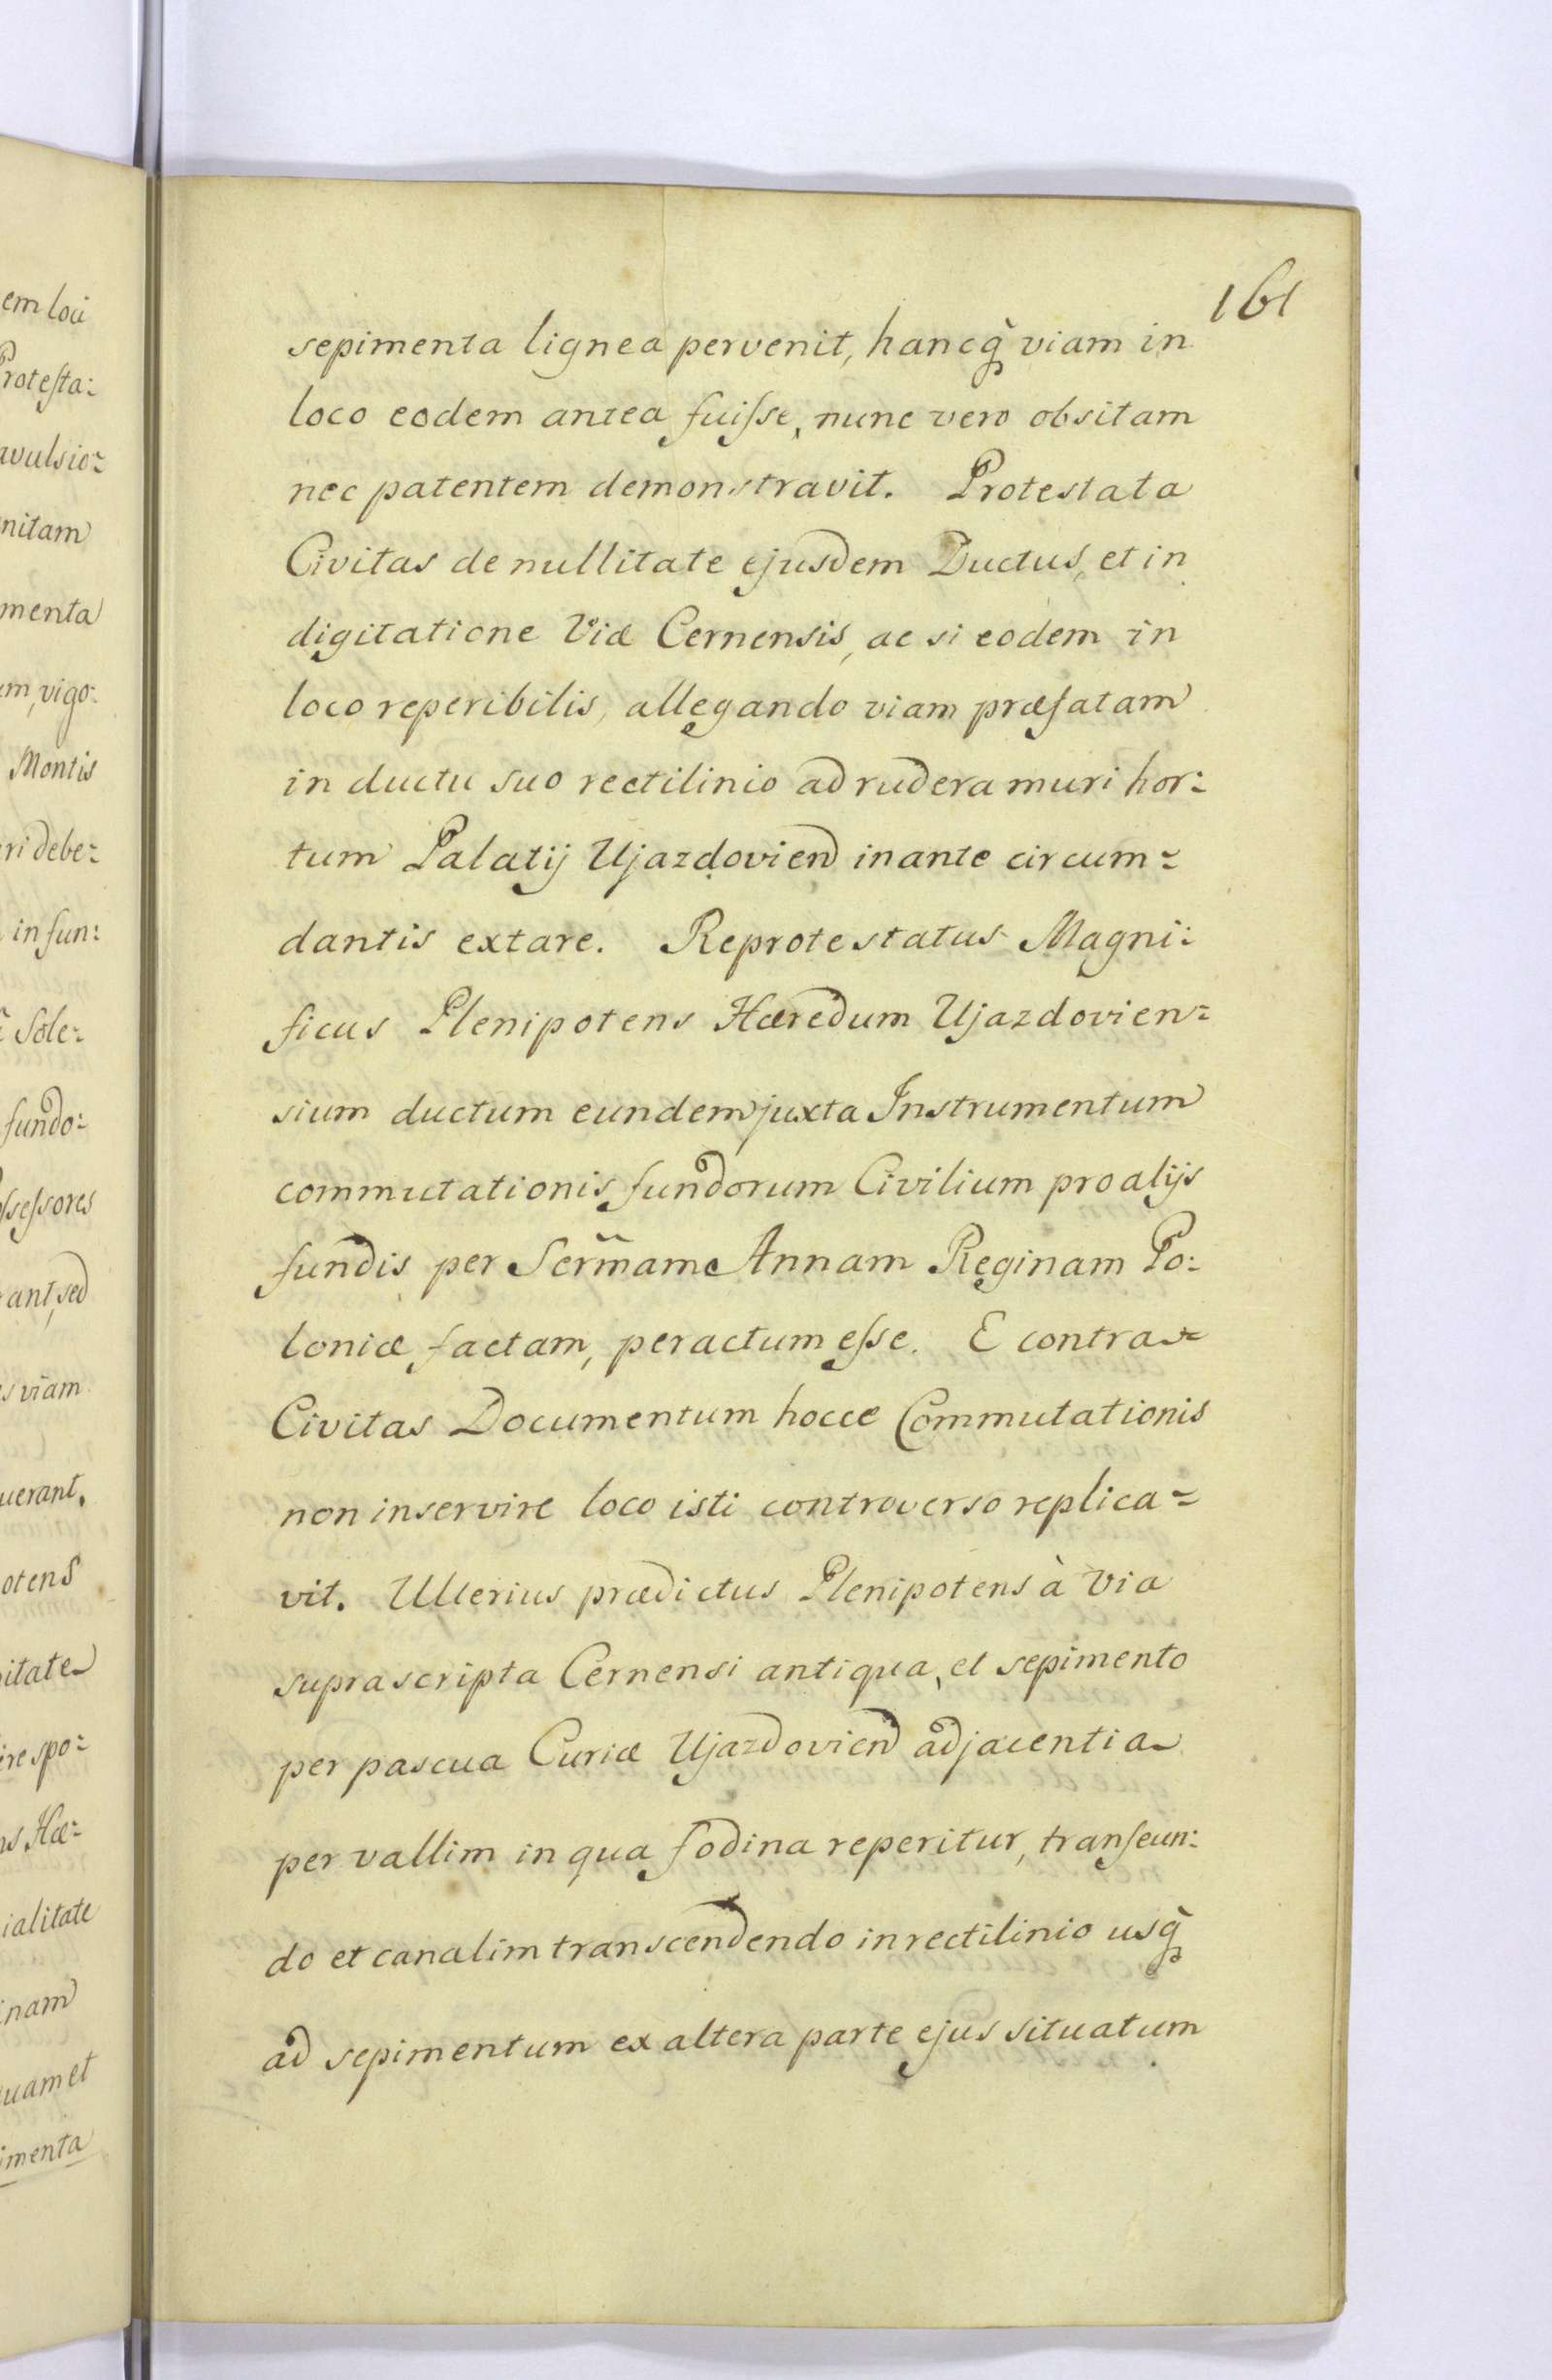 161
sepimenta lignea pervenit, hancq̀ viam in
loco eodem antea fuiſse, nunc vero obsitam
nec patentem demonstravit. Protestata
Civitas de nullitate ejusdem Ductus, et in
digitatione Viæ Cernensis, ac si eodem in
loco reperibilis, allegando viam præfatam
in ductu suo rectilinio ad rudera muri hor:
tum Palatij Ujazdovien inante circum=
dantis extare. Reprotestatus Magni:
ficus Plenipotens Hæredum Ujazdovien=
sium ductum eundem juxta Instrumentum
commutationis fundorum Civilium pro alijs
fundis per Serm̃am Annam Reginam Po:
loniæ factam, peractum eſse. E contra
Civitas Documentum hocce Commutationis
non inservire loco isti controverso replica=
vit. Ulterius prædictus Plenipotens à Via
suprascripta Cernensi antiqua, et sepimento
per pascua Curiæ Ujazdovien adjacentia
per vallim in qua fodina reperitur, tranſeun:
do et canalim transcendendo in rectilinio usq̀
ad sepimentum ex altera parte ejus situatum
em loci
Protesta:
avulsio=
nitam
menta
um, vigo:
Montis
ri debe=
in fun:
Sole:
fundo:
oſseſsores
ant, sed
s viam
uerant.
otens
itate
ire spo=
ns Hæ=
ialitate
inam
uam et
imenta